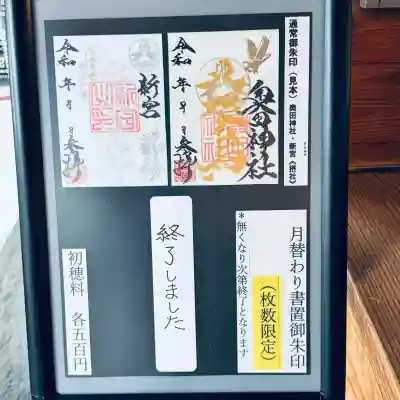 通常御朱印(見本)奥田神社・新宮(摂社)
奥田神社
令和 年 月 日
参拝
新宮
令和 年 月 日
参拝
月替わり書置御朱印
(枚数限定)
*無くなり次第終了となります
終了しました
初穂料 各五百円